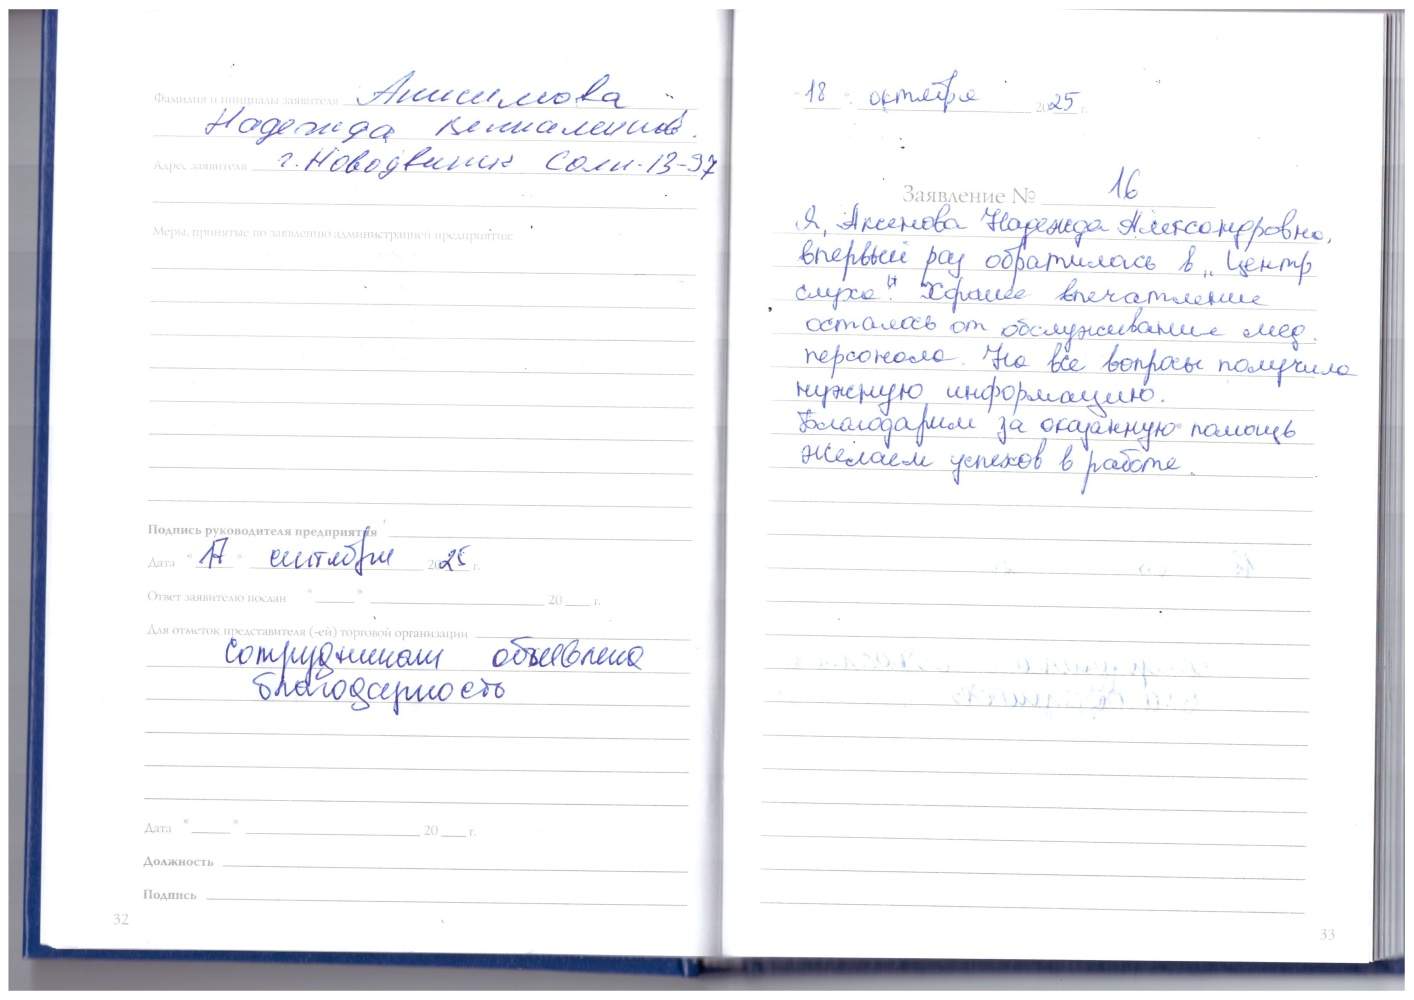 Фамилия и инициалы заявителя Анисимова
Надежда
Адрес заявителя г. Новодвинск Солн. 13-97
Меры, принятые по заявлению администрацией предприятия:
Подпись руководителя предприятия
Дата "17" сентября 2025 г.
Ответ заявителю послан "____" ____ 20 ___ г.
Для отметок представителя (-ей) торговой организации
Сотрудникам объявлена
благодарность
Дата "____" ____ 20 ___ г.
Должность
Подпись
32
"18" октября 2025 г.
Заявление № 16
Я, Аксенова Надежда Александровна,
впервый раз обратилась в „Центр
слуха". Хорошее впечатление
осталось от обслуживание мед.
персонала. На все вопросы получила
нужную информацию.
Благодарим за оказанную помощь
Желаем успехов в работе.
33